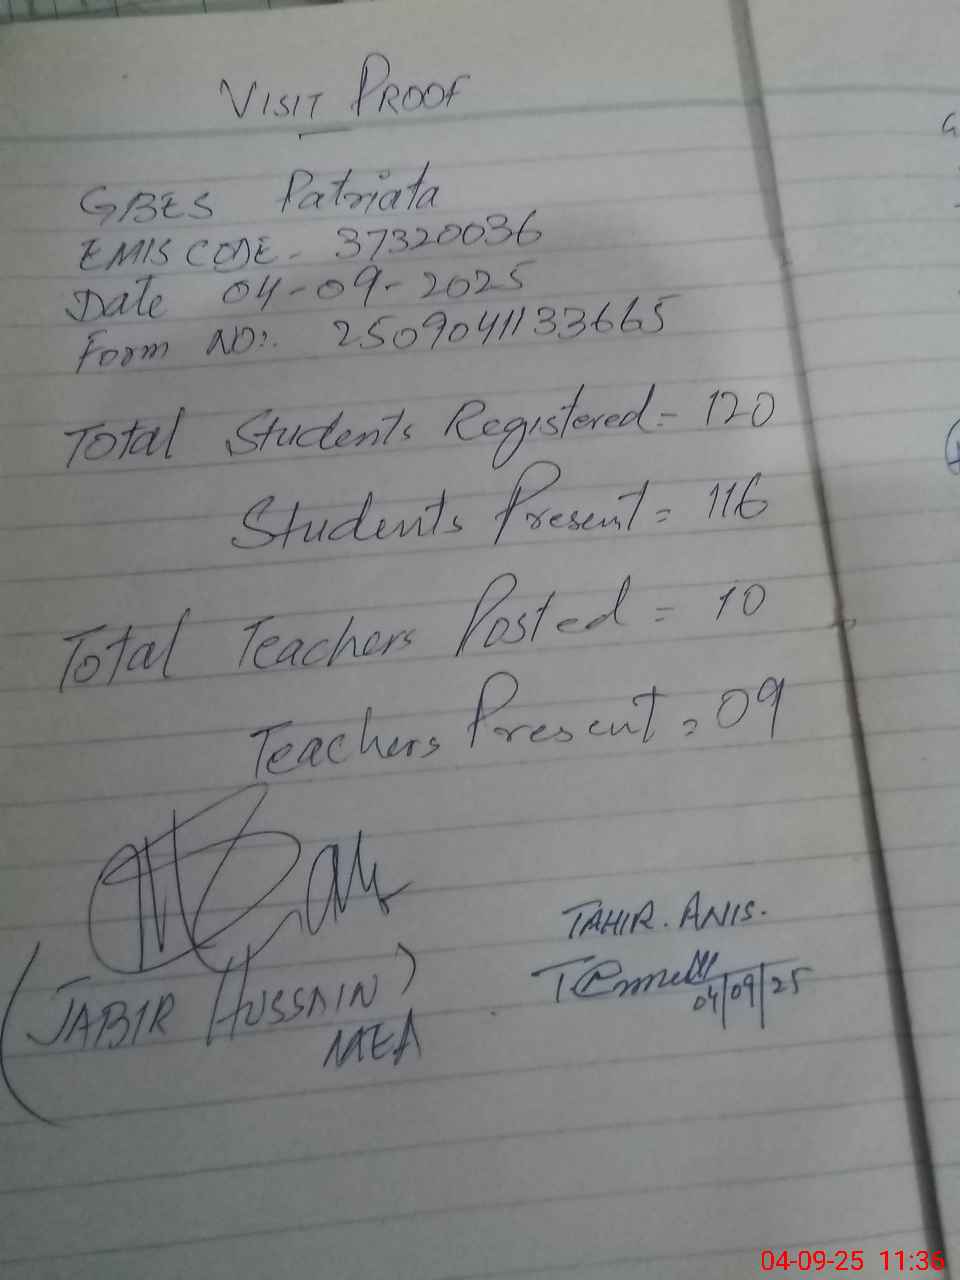 VISIT PROOF
GBES Patriata
EMIS CODE- 37320036
Date 04-09-2025
Form NO:. 2509041133665
Total Students Registered = 120
Students Present = 116
Total Teachers Posted = 10
Teachers Present = 09
(JABIR HUSSAIN)
MEA
TAHIR. ANIS.
04/09/25
04-09-25 11:36